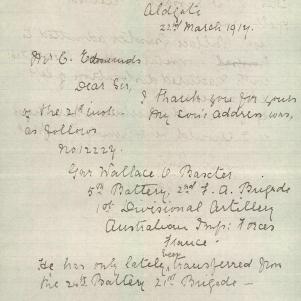 Aldgate
22nd March 1917.
Mr C. Edmunds
Dear Sir,
I thank you for yours
of the 21st inst. My son's address, was,
as follows
No 12229.
Gnr Wallace O. Baxter
5th Battery, 2nd F. A. Brigade
1st Divisional Artillery
Australian Imp: Forces
France.
He has only lately been transferred from
the 24th Battery 21st Brigade —